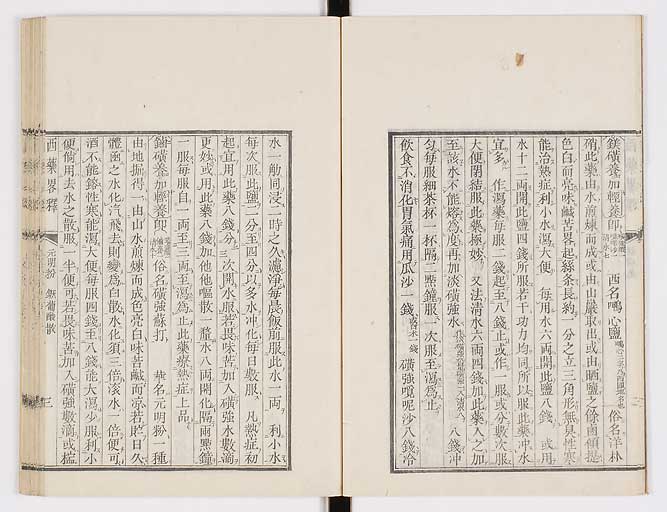 鎂磺養加輕養印 西名嗚心鹽 俗名洋朴
硝此藥由水煎煉而成或由山巖取出或由晒鹽之餘鹵鍊提
色白而亮味鹹苦畧起絲条長約一分之立三角形無臭性寒
能治熱症利小水瀉大便 每用水六兩開此鹽八錢 或用
水十二兩開此鹽四錢所服若干功力均同所以服此藥冲水
宜多 作瀉藥每服二錢起至八錢止或作一服或分數次服
大便閉結服此藥極妙 又法清水六兩四錢加此藥入之加
至該水不能鎔為度再加淡磺強水 八錢冲
勻每服細茶杯一杯隔二點鐘服一次服至瀉為止
飲食不消化胃氣痛用瓜沙一錢 磺強嗼呢沙八錢冷
水一觔同浸二時之久濾淨每晨飯前服此水一兩 利小水
每次服此鹽二分至四分以多水冲化每日數服 凡熱症初
起宜用此藥八錢分三次開水服若畏味苦加入磺強水數滴
更妙或用此藥八錢加他他嘔散一釐水八兩開化隔兩點鐘
一服每服自一兩至三兩至瀉為止此藥療熱症上品
鏀磺養加輕養印 俗名磺強蘇打 華名元明粉一種
由地掘得一由山水煎煉而成色亮白味苦鹹而凉若貯日久
體面之水化汽飛去則變為白散水化須三倍淡水一倍便可
酒不能鎔性寒能瀉大便每服四錢至八錢能大瀉少服利小
便倘用去水之散服一半便可若畏味苦加入磺強數滴或檬
西藥畧釋 元明粉
三